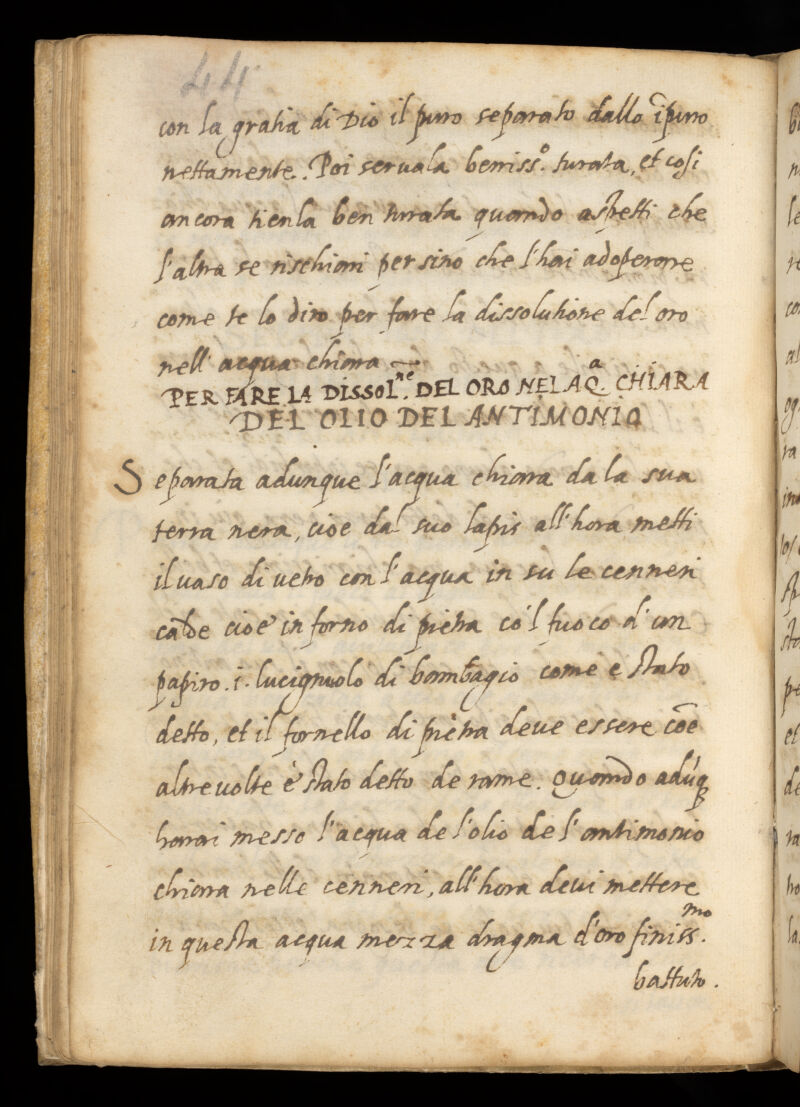 44
con la gratia di Dio il puro separato dallo īpuro
nettamente. Poi seruala beniss.º turata, et cosi
ancora tienla ben turata quando aspetti che
l'altra se rischiari per sino che l'hai adoperare
come te lo diro per fare la dissolutione del oro
nell' acqua chiara
PER FARE LA DISSOL.ⁿᵉ DEL ORO NEL AQ.ᵃ CHIARA
DEL OLIO DEL ANTIMONIO
Separata adunque l'acqua chiara da la sua
terra nera, cioe dal suo lapis all'hora metti
il uaso di uetro con l'acqua in su le cenneri
calde cioe in forno di pietra cō'l fuoco d'un
papiro .i. lucignuolo di bambagio come è stato
detto, et il fornello di pietra deue essere cōe
altre uolte è stato detto de rame. Quando adūq
harai messo l'acqua de l'olio de l'antimonio
chiara nelle cenneri, all'hora deui mettere
in questa acqua mezza dragma d'oro finiss.ᵐᵒ
battuto.